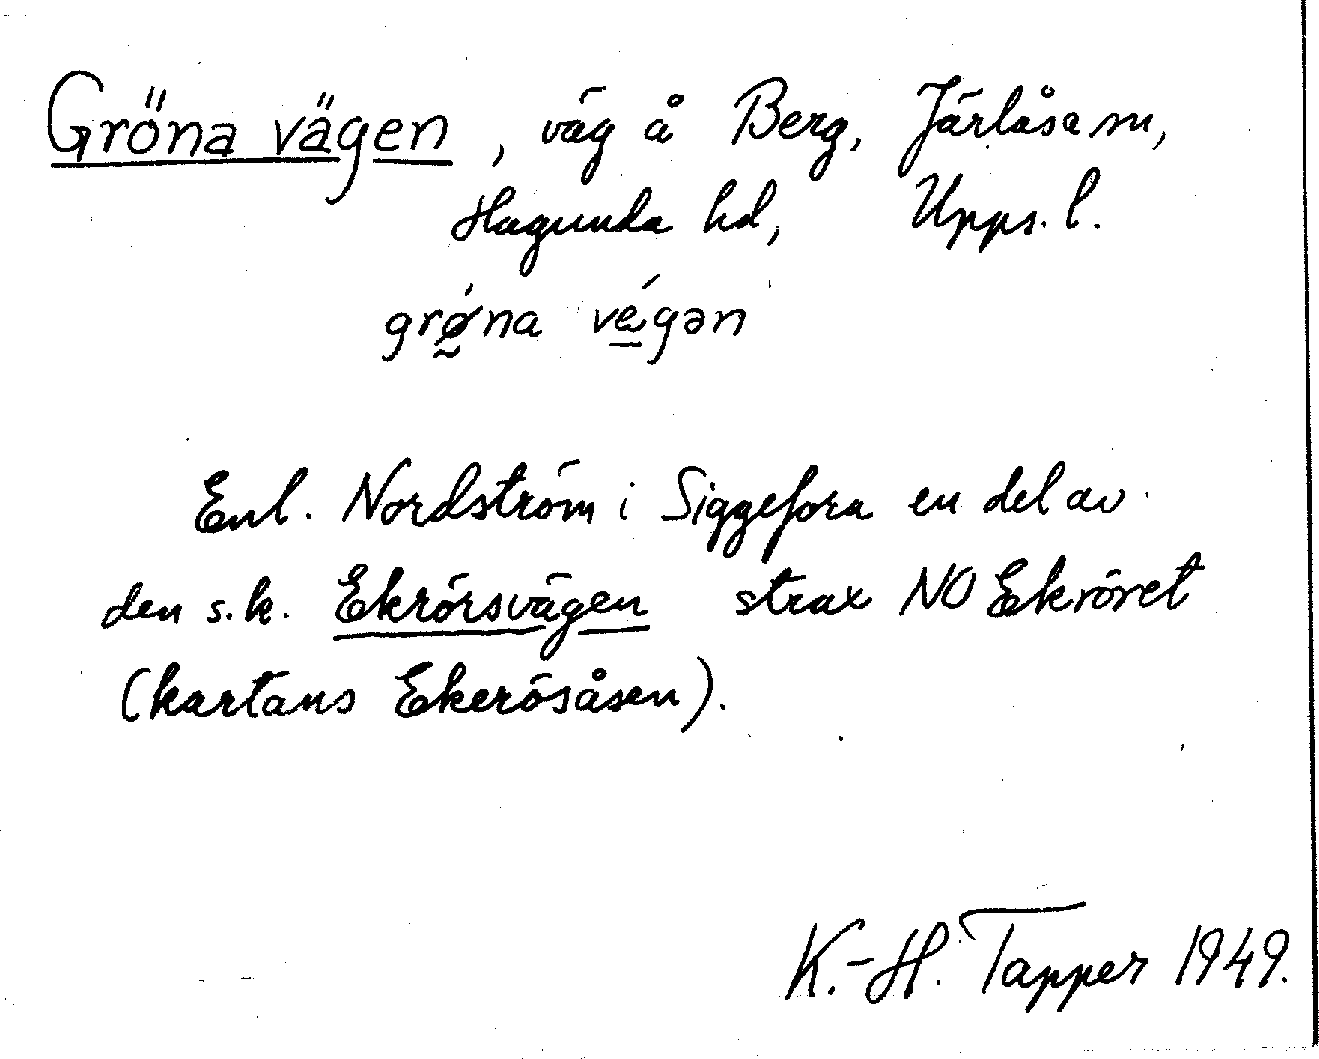 Gröna vägen, väg å Berg, Järlåsa sn,
Hagunda hd, Upps. l.
grǿ̰na vé̲gən
Enl. Nordström i Siggefora en del av
den s.k. Ekrörsvägen strax NO Ekröret
(kartans Ekerösåsen).
K.-H. Tapper 1949.